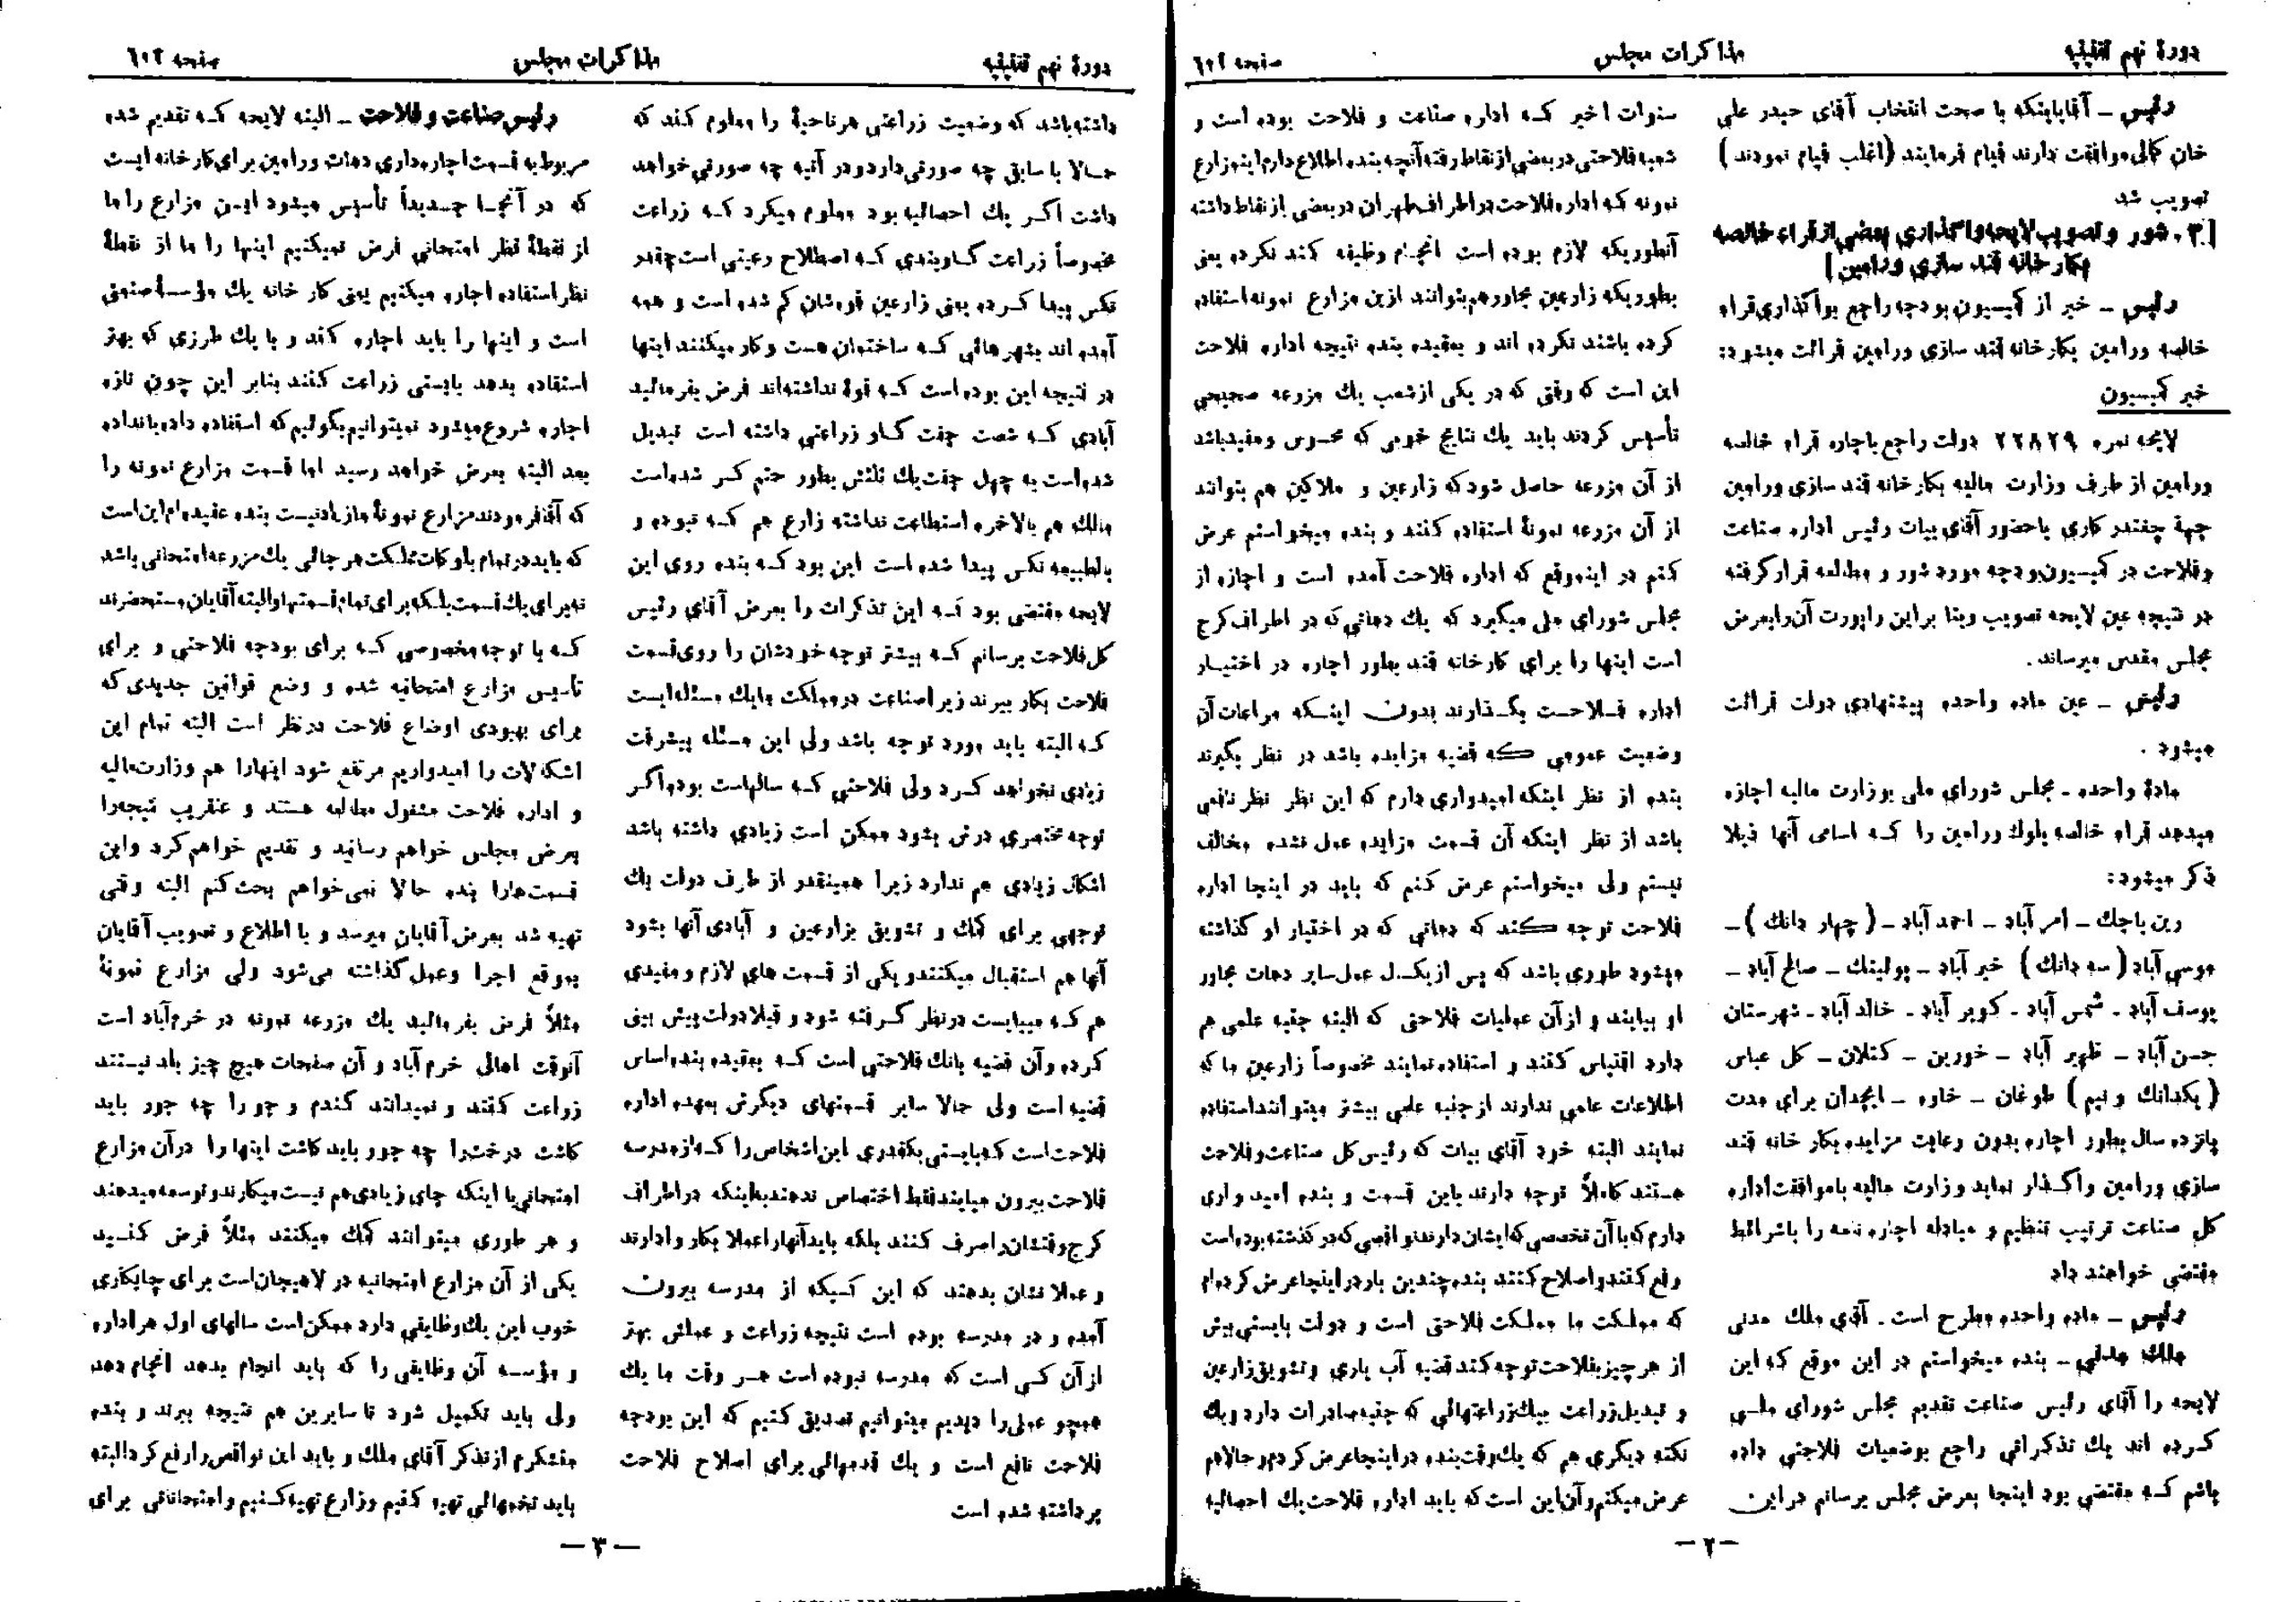 دورهٔ نهم تقنینیه
مذاکرات مجلس
صفحه ٦٠١
رئیس ـ آقایانیکه با صحت انتخاب آقای حیدر علی
خان کمالی موافقت دارند قیام فرمایند (اغلب قیام نمودند)
تصویب شد
[۳ـ شور و تصویب لایحه واگذاری بعضی از قراء خالصه
بکارخانه قند سازی ورامین]
رئیس ـ خبر از کمیسیون بودجه راجع بواگذاری قراء
خالصه ورامین بکارخانه قند سازی ورامین قرائت میشود:
خبر کمیسیون
لایحه نمره ۲۲۸۲۹ دولت راجع باجاره قراء خالصه
ورامین از طرف وزارت مالیه بکارخانه قند سازی ورامین
جهة چغندر کاری باحضور آقای بیات رئیس اداره صناعت
وفلاحت در کمیسیون بودجه مورد شور و مطالعه قرار گرفته
در نتیجه عین لایحه تصویب وبنا براین راپورت آن رابعرض
مجلس مقدس میرساند.
رئیس ـ عین ماده واحده پیشنهادی دولت قرائت
میشود .
مادهٔ واحده ـ مجلس شورای ملی بوزارت مالیه اجازه
میدهد قراء خالصه بلوك ورامین را که اسامی آنها ذیلا
ذکر میشود:
رین باجك ـ امر آباد ـ احمد آباد ـ (چهار دانك) ـ
موسی آباد (سه دانك) خیر آباد ـ پولینك ـ صالح آباد ـ
یوسف آباد ـ شمس آباد ـ کویر آباد ـ خالد آباد ـ شهرستان
حسن آباد ـ ظهیر آباد ـ خورین ـ کتلان ـ کل عباس
(یکدانك و نیم) طوغان ـ خاوه ـ ایجدان برای مدت
پانزده سال بطور اجاره بدون رعایت مزایده بکار خانه قند
سازی ورامین واگذار نماید وزارت مالیه باموافقت اداره
کل صناعت ترتیب تنظیم و مبادله اجاره نامه را باشرائط
مقتضی خواهند داد
رئیس ـ ماده واحده مطرح است . آقای ملك مدنی
ملك مدنی ـ بنده میخواستم در این موقع که این
لایحه را آقای رئیس صناعت تقدیم مجلس شورای ملی
کرده اند یك تذکراتی راجع بوضعیات فلاحتی داده
باشم که مقتضی بود اینجا بعرض مجلس برسانم در این
سنوات اخیر که اداره صناعت و فلاحت بوده است و
شعبه فلاحتی در بعضی از نقاط رفته آنچه بنده اطلاع دارم این مزارع
نمونه که اداره فلاحت در اطراف طهران در بعضی از نقاط داشته
آنطوریکه لازم بوده است انجام وظیفه کند نکرده یعنی
بطوریکه زارعین مجاور هم بتوانند ازین مزارع نمونه استفاده
کرده باشند نکرده اند و بعقیده بنده نتیجه اداره فلاحت
این است که وقتی که در یکی از شعب یك مزرعه صحیحی
تأسیس کردند باید یك نتایج خوبی که محسوس و مفید باشد
از آن مزرعه حاصل شود که زارعین و ملاکین هم بتوانند
از آن مزرعه نمونهٔ استفاده کنند و بنده میخواستم عرض
کنم در این موقع که اداره فلاحت آمده است و اجازه از
مجلس شورای ملی میگیرد که یك دهاتی که در اطراف کرج
است اینها را برای کارخانه قند بطور اجاره در اختیار
اداره فلاحت بگذارند بدون اینکه مراعات آن
وضعیت عمومی که قضیه مزایده باشد در نظر بگیرند
بنده از نظر اینکه امیدواری دارم که این نظر نظر نافعی
باشد از نظر اینکه آن قسمت مزایده عمل نشده مخالف
نیستم ولی میخواستم عرض کنم که باید در اینجا اداره
فلاحت توجه کند که دهاتی که در اختیار او گذاشته
میشود طوری باشد که پس از یکسال عمل سایر دهات مجاور
او بیایند و از آن عملیات فلاحتی که البته جنبه علمی هم
دارد اقتباس کنند و استفاده نمایند مخصوصاً زارعین ما که
اطلاعات علمی ندارند از جنبه علمی بیشتر میتوانند استفاده
نمایند البته خود آقای بیات که رئیس کل صناعت و فلاحت
هستند کاملاً توجه دارند باین قسمت و بنده امید واری
دارم که با آن تخصصی که ایشان دارند نواقصی که در گذشته بوده است
رفع کنند و اصلاح کنند بنده چندین بار در اینجا عرض کرده ام
که مملکت ما مملکت فلاحتی است و دولت بایستی بیش
از هر چیز بفلاحت توجه کند قضیه آب یاری و تشویق زارعین
و تبدیل زراعت بیك زراعتهائی که جنبه صادرات دارد و یك
نکته دیگری هم که یك وقت بنده در اینجا عرض کردم و حالا هم
عرض میکنم و آن این است که باید اداره فلاحت یك احصائیه
ـ ۲ ـ
دورهٔ نهم تقنینیه
مذاکرات مجلس
صفحه ٦٠٢
داشته باشد که وضعیت زراعتی هر ناحیهٔ را معلوم کند که
حالا با سابق چه صورتی دارد و در آتیه چه صورتی خواهد
داشت اگر یك احصائیه بود معلوم میکرد که زراعت
مخصوصاً زراعت گاوبندی که اصطلاح رعیتی است چقدر
نکس پیدا کرده یعنی زارعین قوه شان کم شده است و همه
آمده اند بشهر هائی که ساختمان هست و کار میکنند اینها
در نتیجه این بوده است که قوهٔ نداشته اند فرض بفرمائید
آبادی که شصت جفت گاو زراعتی داشته است تبدیل
شده است به چهل جفت یك ثلثش بطور حتم کسر شده است
مالك هم بالاخره استطاعت نداشته زارع هم که نبوده و
بالطبیعه نکس پیدا شده است این بود که بنده روی این
لایحه مقتضی بود که این تذکرات را بعرض آقای رئیس
کل فلاحت برسانم که بیشتر توجه خودشان را روی قسمت
فلاحت بکار ببرند زیرا صناعت در مملکت ما یك مسئله ایست
که البته باید مورد توجه باشد ولی این مسئله پیشرفت
زیادی نخواهد کرد ولی فلاحتی که سالهاست بوده اگر
توجه مختصری درش بشود ممکن است زیادی داشته باشد
اشکال زیادی هم ندارد زیرا همینقدر از طرف دولت یك
توجهی برای کمك و تشویق بزارعین و آبادی آنها بشود
آنها هم استقبال میکنند و یکی از قسمت های لازم و مفیدی
هم که میبایست درنظر گرفته شود و قبلا دولت پیش بینی
کرده و آن قضیه بانك فلاحتی است که بعقیده بنده اساس
قضیه است ولی حالا سایر قسمتهای دیگرش بعهده اداره
فلاحت است که بایستی بکقدری این اشخاص را که از مدرسه
فلاحت بیرون میایند فقط اختصاص ندهند باینکه در اطراف
کرج وقتشان را صرف کنند بلکه باید آنها را عملا بکار وادارند
و عملا نشان بدهند که این کسیکه از مدرسه بیرون
آمده و در مدرسه بوده است نتیجه زراعت و عملش بهتر
از آن کسی است که مدرسه نبوده است هر وقت ما یك
همچو عملی را دیدیم میتوانیم تصدیق کنیم که این بودجه
فلاحت نافع است و یك قدمهائی برای اصلاح فلاحت
برداشته شده است
رئیس صناعت و فلاحت ـ البته لایحه که تقدیم شده
مربوط به قسمت اجاره داری دهات ورامین برای کارخانه ایست
که در آنجا جدیداً تأسیس میشود این مزارع را ما
از نقطهٔ نظر امتحانی فرض نمیکنیم اینها را ما از نقطهٔ
نظر استفاده اجاره میکنیم یعنی کار خانه یك مؤسسهٔ صنعتی
است و اینها را باید اجاره کند و با یك طرزی که بهتر
استفاده بدهد بایستی زراعت کنند بنابر این چون تازه
اجاره شروع میشود نمیتوانیم بگوئیم که استفاده داده یا نداده
بعد البته بعرض خواهد رسید اما قسمت مزارع نمونه را
که آقا فرمودند مزارع نمونهٔ ما زیاد نیست بنده عقیده ام این است
که باید در تمام بلوکات مملکت هر جائی یك مزرعه امتحانی باشد
نه برای یك قسمت بلکه برای تمام قسمتها و البته آقایان مستحضرند
که با توجه مخصوصی که برای بودجه فلاحتی و برای
تأسیس مزارع امتحانیه شده و وضع قوانین جدیدی که
برای بهبودی اوضاع فلاحت درنظر است البته تمام این
اشکالات را امیدواریم مرتفع شود اینهارا هم وزارت مالیه
و اداره فلاحت مشغول مطالعه هستند و عنقریب نتیجه را
بعرض مجلس خواهم رسانید و تقدیم خواهم کرد واین
قسمت هارا بنده حالا نمی خواهم بحث کنم البته وقتی
تهیه شد بعرض آقایان میرسد و با اطلاع و تصویب آقایان
بموقع اجرا وعمل گذاشته می شود ولی مزارع نمونهٔ
مثلاً فرض بفرمائید یك مزرعه نمونه در خرم آباد است
آنوقت اهالی خرم آباد و آن صفحات هیچ چیز یاد نیستند
زراعت کنند و نمیدانند گندم و جو را چه جور باید
کاشت درخت را چه جور باید کاشت اینها را در آن مزارع
امتحانی با اینکه جای زیادی هم نیست میکارند و توسعه میدهند
و هر طوری میتوانند کمك میکنند مثلاً فرض کنید
یکی از آن مزارع امتحانیه در لاهیجان است برای چایکاری
خوب این یك وظایفی دارد ممکن است سالهای اول هر اداره
و مؤسسه آن وظایفی را که باید انجام بدهد انجام دهد
ولی باید تکمیل شود تا سایرین هم نتیجه ببرند و بنده
متشکرم از تذکر آقای ملك و باید این نواقص را رفع کرد البته
باید تخمهائی تهیه کنیم و زارع تهیه کنیم و امتحاناتی برای
ـ ۳ ـ